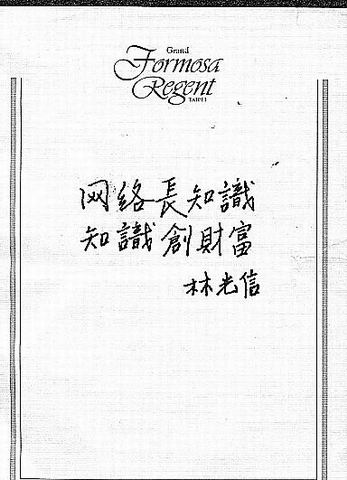 Grand
Formosa
Regent
TAIPEI
网络長知識
知識創財富
林光信